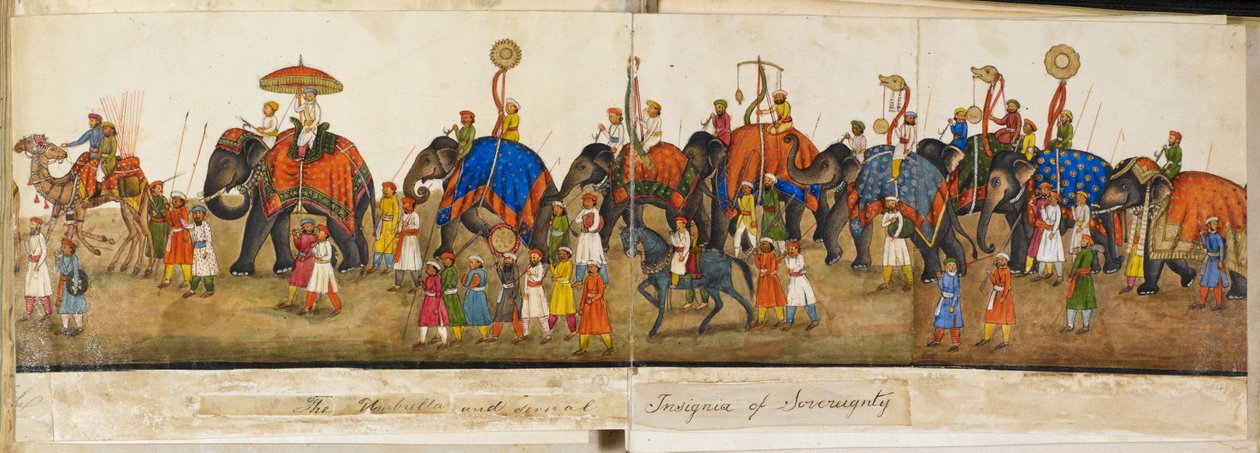 The Umbrella and several Insignia of Sovereignty